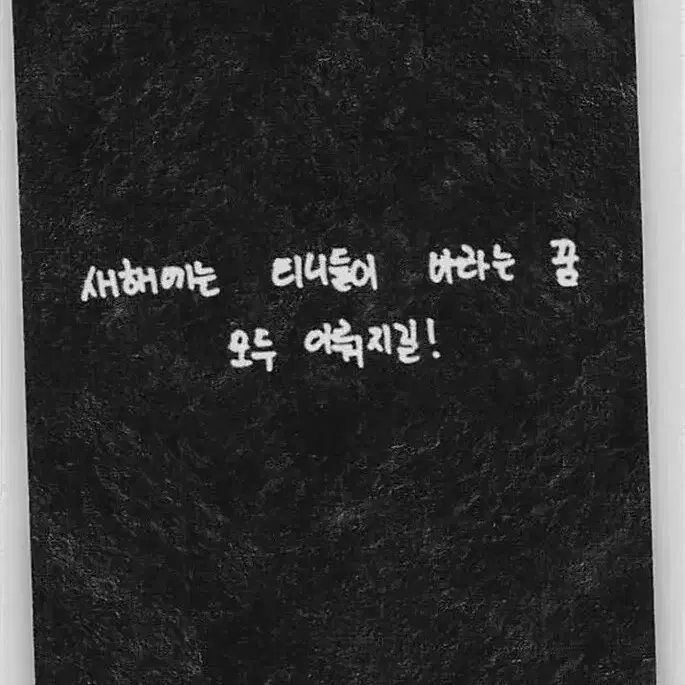 새해에는 티니들이 바라는 꿈
모두 이뤄지길!